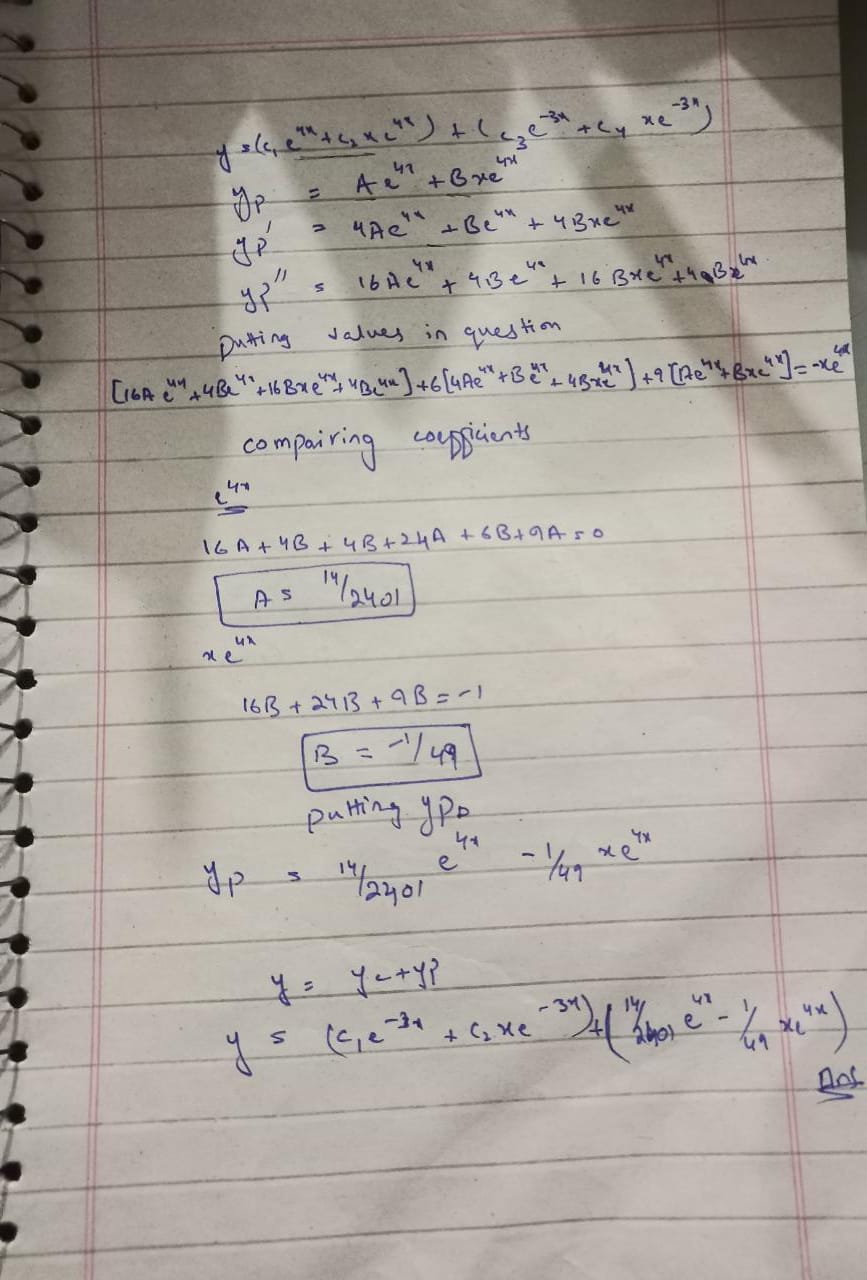 y = (c₁e⁴ˣ + c₂xe⁴ˣ) + (c₃e⁻³ˣ + c₄ xe⁻³ˣ)
yp = Ae⁴ˣ + Bxe⁴ˣ
yp' = 4Ae⁴ˣ + Be⁴ˣ + 4Bxe⁴ˣ
yp'' = 16Ae⁴ˣ + 4Be⁴ˣ + 16Bxe⁴ˣ + 4Be⁴ˣ
Putting values in question
[16Ae⁴ˣ + 4Be⁴ˣ + 16Bxe⁴ˣ + 4Be⁴ˣ] + 6[4Ae⁴ˣ + Be⁴ˣ + 4Bxe⁴ˣ] + 9[Ae⁴ˣ + Bxe⁴ˣ] = -xe⁴ˣ
compairing coefficients
e⁴ˣ
16A + 4B + 4B + 24A + 6B + 9A = 0
A = 14/2401
xe⁴ˣ
16B + 24B + 9B = -1
B = -1/49
putting yp
yp = 14/2401 e⁴ˣ - 1/49 xe⁴ˣ
y = yc + yp
y = (c₁e⁻³ˣ + c₂xe⁻³ˣ) + (14/2401 e⁴ˣ - 1/49 xe⁴ˣ)
Ans